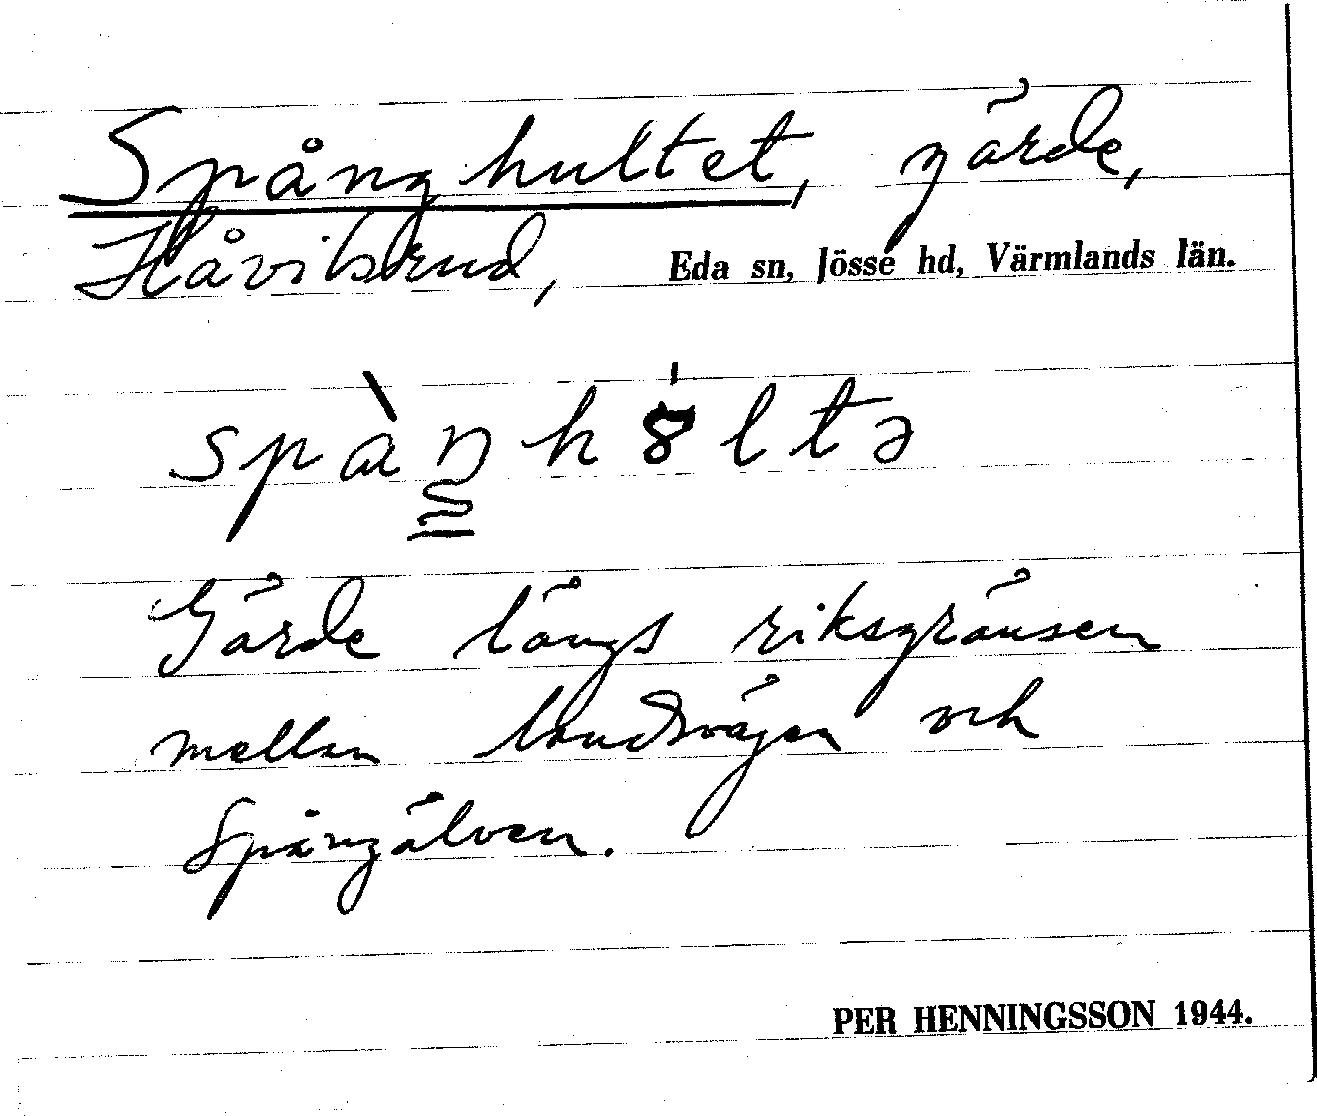 Spånghultet, gärde,
Håvilsrud, Eda sn, Jösse hd, Värmlands län.
spàŋh8ltə
Gärde längs riksgränsen
mellan landsvägen och
Spångälven.
PER HENNINGSSON 1944.